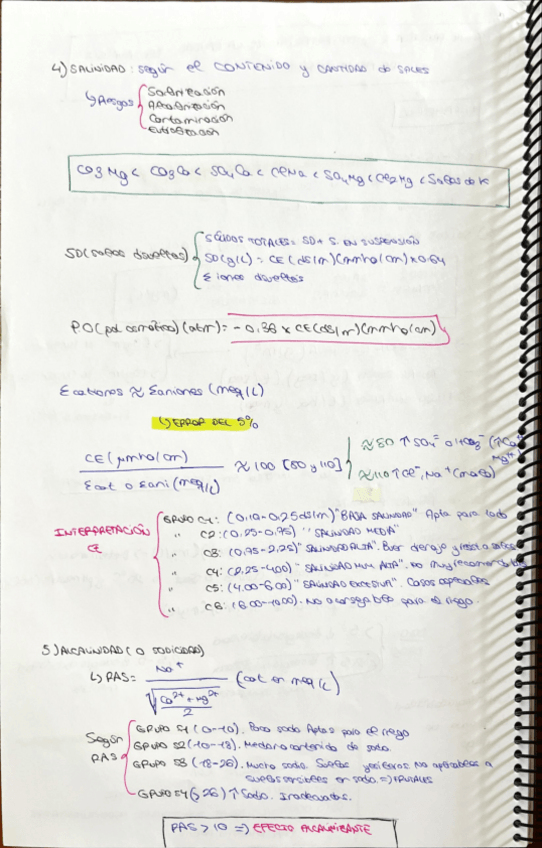 4) SALINIDAD: según el CONTENIDO y CANTIDAD de SALES
↳ Riesgos { Salinización
Alcalinización
Contaminación
Eutrofización
CO3Mg < CO3Ca < SO4Ca < ClNa < SO4Mg < Cl2Mg < Sales de K
SD (sales disueltas) { SÓLIDOS TOTALES = SD + S. EN SUSPENSIÓN
SD (g/L) = CE (dS/m) (mmho/cm) x 0.64
Σ iones disueltos
P.O (pot. osmótico) (atm) = - 0.36 x CE (dS/m) (mmho/cm)
Σcationes ≈ Σaniones (meq/L)
↳ ERROR DEL 5%
CE (μmho/cm) / Σcat o Σani (meq/L) ≈ 100 [80 y 110] { ≈ 80 ↑ SO4= o HCO3- (↑Ca++
Mg++)
≈ 110 ↑ Cl-, Na+
INTERPRETACIÓN CE { GRUPO C1: (0,10-0,25 dS/m) "BAJA SALINIDAD" Apta para todo
" C2: (0,25-0,75) "SALINIDAD MEDIA"
" C3: (0,75-2,25) "SALINIDAD ALTA". Buen drenaje y resist a sales
" C4: (2,25-4,00) "SALINIDAD MUY ALTA". no muy recomendable
" C5: (4,00-6,00) "SALINIDAD EXCESIVA". Casos especiales
" C6: (6,00-10,00). No aconsejables para el riego.
5) ALCALINIDAD (O SODICIDAD)
↳ RAS = Na+ / √((Ca2+ + Mg2+)/2) (cat en meq/L)
Según RAS { GRUPO S1 (0-10). Poco sodio. Aptas para el riego
GRUPO S2 (10-18). Mediano contenido de sodio.
GRUPO S3 (18-26). Mucho sodio. Suelos yesíferos. No aplicables a
suelos sensibles en sodio =) FRUTALES
GRUPO S4 (> 26) ↑ Sodio. Inadecuadas.
RAS > 10 =) EFECTO ALCALINIZANTE